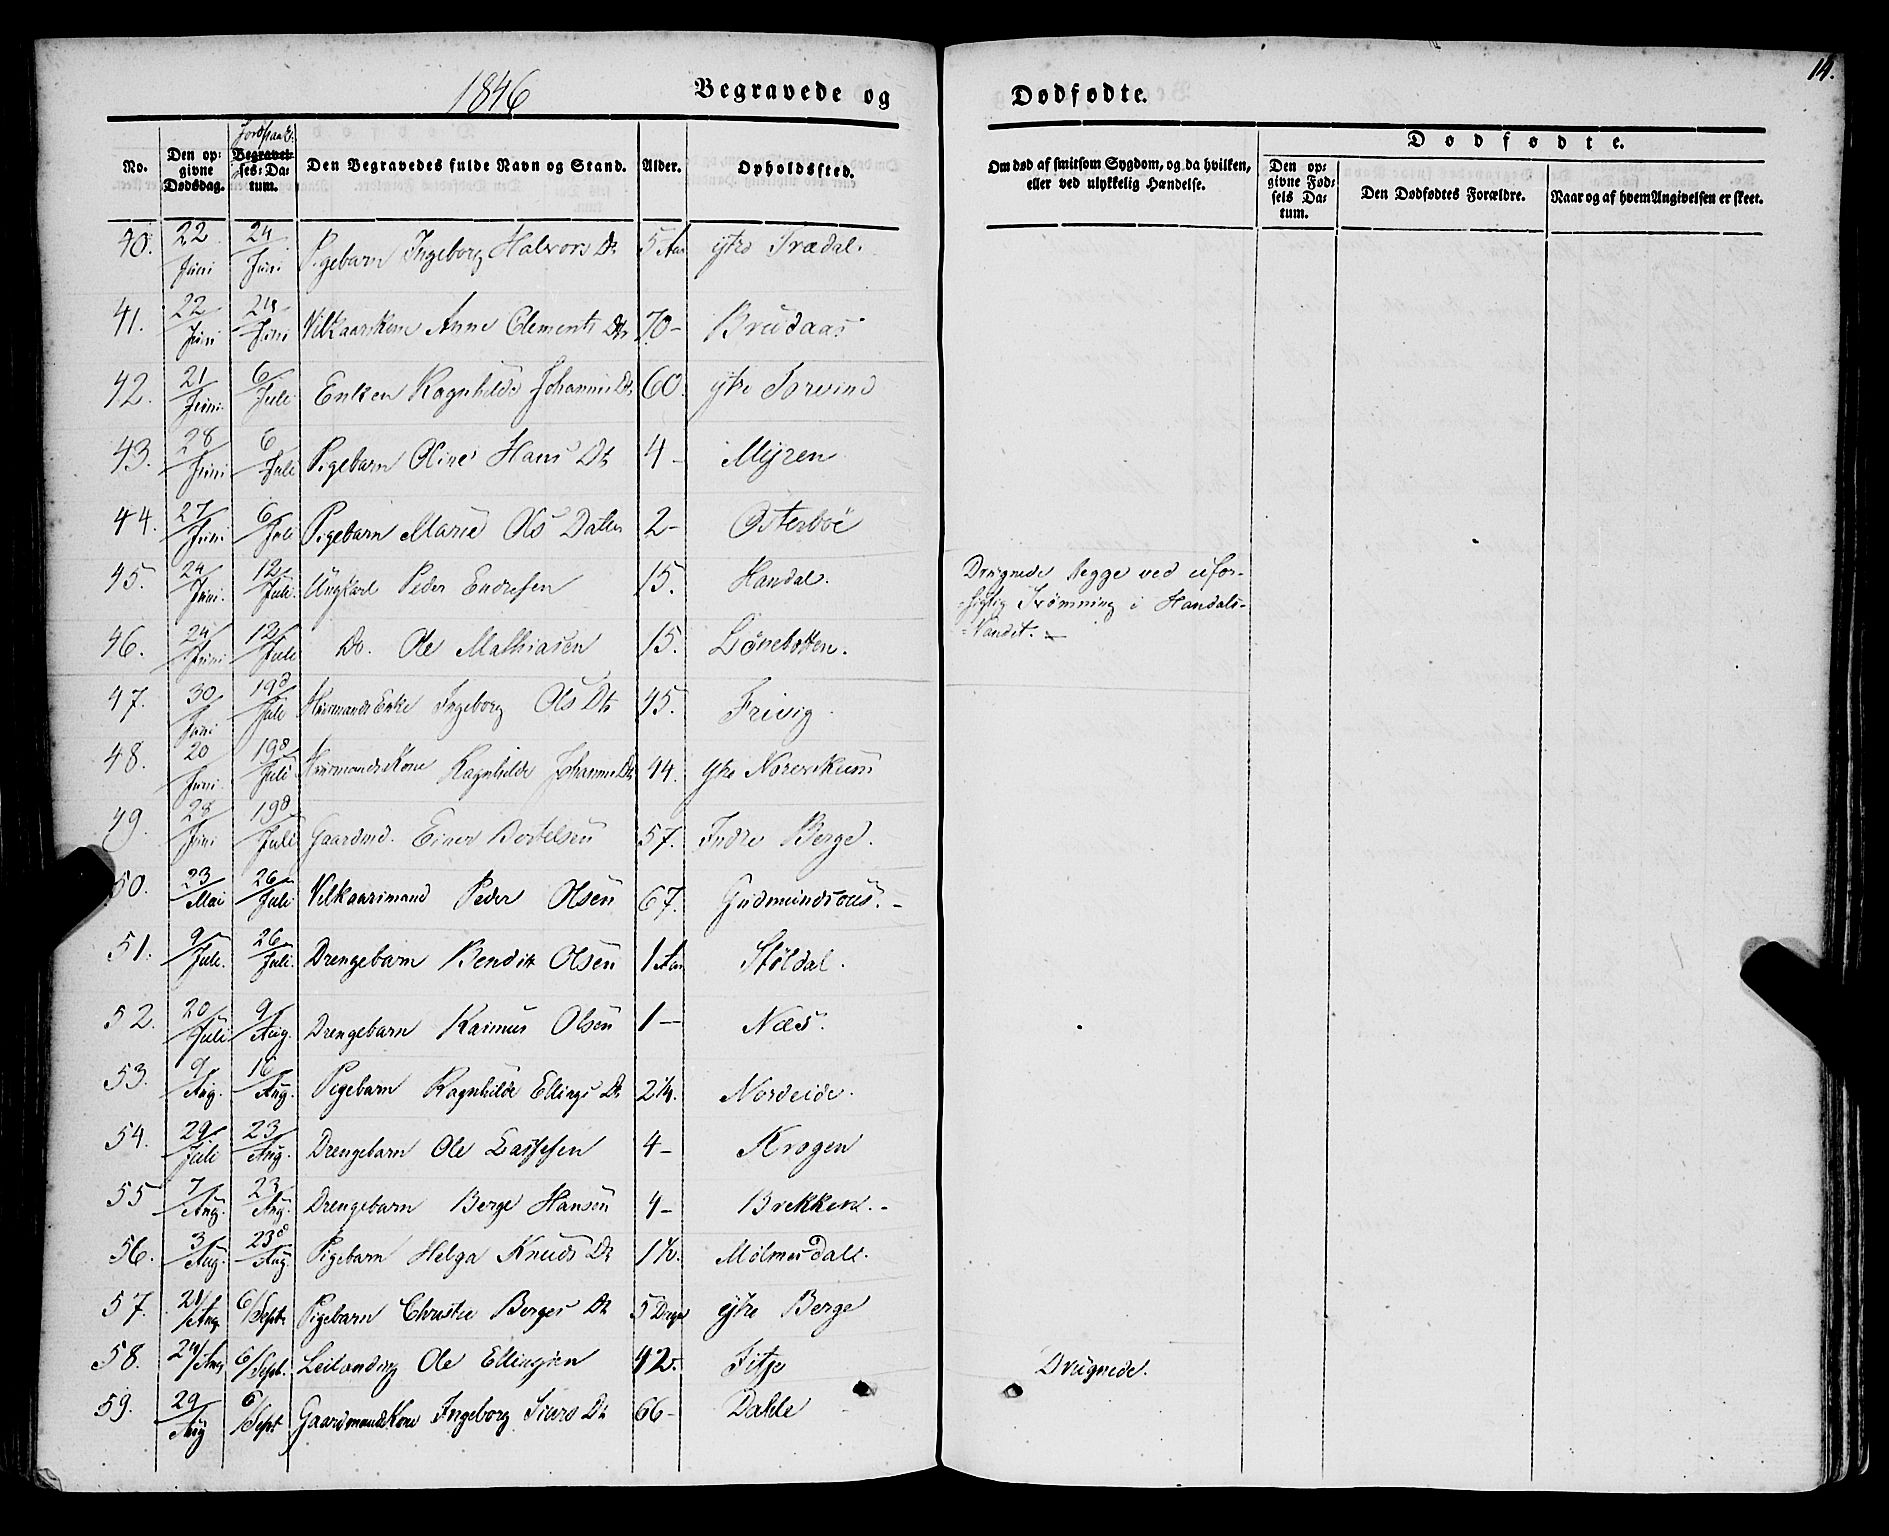 1846
Begravede og
Dødfødte.
14.
No.
Den opgivne Dødsdag.
Jordpaak.
Begravelses-Datum.
Den Begravedes fulde Navn og Stand.
Alder.
Opholdssted.
Om død af smitsom Sygdom, og da hvilken, eller ved ulykkelig Hændelse.
Dødfødte.
Den opgivne Fødsels Datum.
Den Dødfødtes Forældre.
Naar og af hvem Angivelsen er skeet.
40. 22/Juni 24/Juni Pigebarn Ingeborg Halvors Dr 5 Aar ytre Trædal.
41. 22/Juni 24/Juni Vilkaarskone Anne Clements Dtr 70- Brudaas
42. 21/Juni 6/Juli Enken Ragnhilde Johannis Dr 60. ytre
43. 28/Juni 6/Juli Pigebarn Oline Hans Dtr 4- Myren
44. 27/Juni 6/Juli Pigebarn Marie Ols Datter 2- Osterboe
45. 24/Juni 12/Juli Ungkarl Peder Endresen 15. Handal. Drugnede begge ved ufor-
sigtig Svømning i Handals-
Vandet.
46. 24/Juni 12/Juli Do. Ole Mathiasen 15. Lønebotten.
47. 30/Juni 19d/Juli Huusmands Enke Ingeborg Ols Dtr 45. Frivig
48. 20/Juni 19d/Juli Huusmands Kone Ragnhilde Johannes Dr 44. ytre
49. 28/Juni 19d/Juli Gaardmd. Einer Bertelsen 57. Indre Berge.
50. 23/Mai 26/Juli Vilkaarsmand Peder Olsen 67.
51. 9/Juli. 26/Juli. Drengebarn Bendik Olsen 1 Aar Støldal.
52. 20/Juli 9/Aug. Drengebarn Rasmus Olsen 1— Næs.
53. 9/Aug. 16/Aug. Pigebarn Ragnhilde Ellings Dr 2 1/4. Nordeide.
54. 29/Juli 23/Aug. Drengebarn Ole Lassesen 4- Krogen
55 7/Aug. 23/Aug. Drengebarn Berge Hansen 4- Brekken.-
56. 3/Aug. 23d/Aug. Pigebarn Helga Knuds Dr 1 1/2.
57. 21/Aug. 6/Septr Pigebarn Christie Berges Dr 5 Dage ytre Berge
58. 24/Aug 6/Sept. Leilending Ole Ellingsen 42. Fitje Drugnede.
59. 29/Aug 6/Sept Gaardmands Kone Ingeborg Siurs Dr 66- Dahle